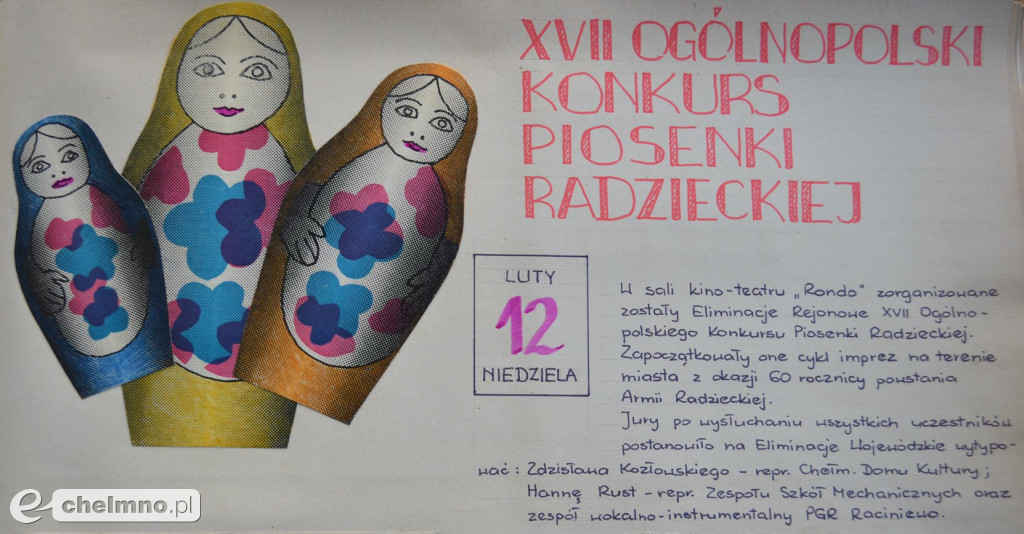 XVII OGÓLNOPOLSKI
KONKURS
PIOSENKI
RADZIECKIEJ
LUTY
12
NIEDZIELA
W sali kino-teatru „Rondo" zorganizowane
zostały Eliminacje Rejonowe XVII Ogólno-
polskiego Konkursu Piosenki Radzieckiej.
Zapoczątkowały one cykl imprez na terenie
miasta z okazji 60 rocznicy powstania
Armii Radzieckiej.
Jury po wysłuchaniu wszystkich uczestników
postanowiło na Eliminacje Wojewódzkie wytypo-
wać: Zdzisława Kozłowskiego - repr. Chełm. Domu Kultury;
Hannę Rust - repr. Zespołu Szkół Mechanicznych oraz
zespół wokalno-instrumentalny PGR Raciniewo.
e-chelmno.pl